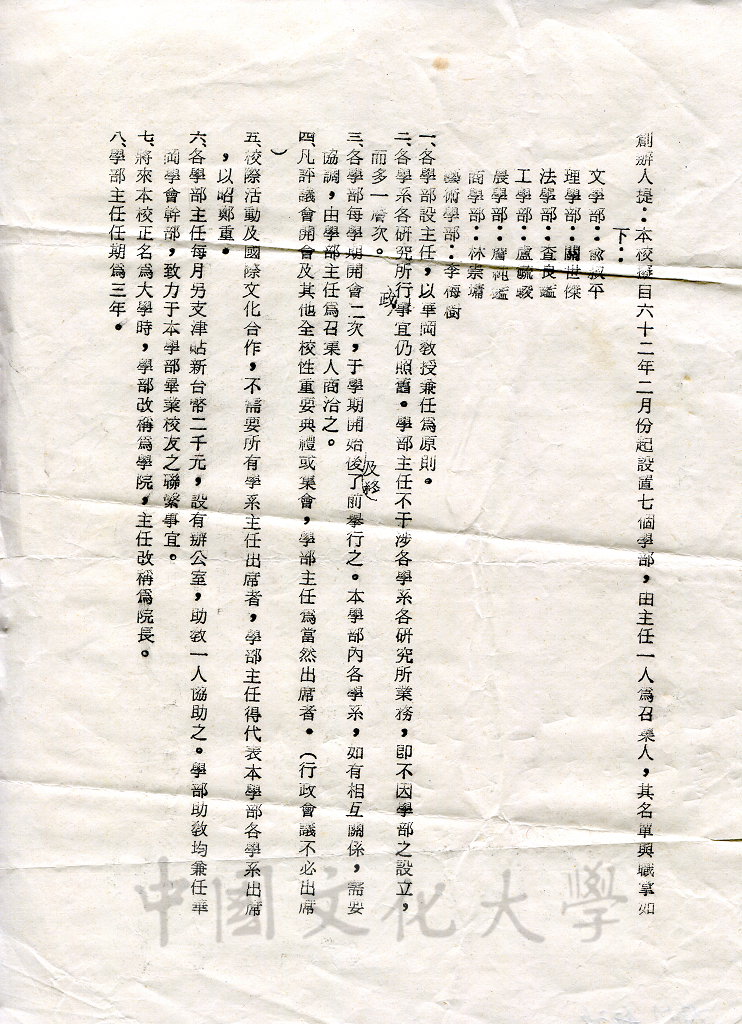 創辦人提：本校擬自六十二年二月份起設置七個學部，由主任一人為召集人，其名單與職掌如
下：
文學部：
理學部：關世傑
法學部：查良鑑
工學部：盧毓駿
農學部：
商學部：林崇墉
藝術學部：李梅樹
一、各學部設主任，以華岡教授兼任為原則。
二、各學系各研究所行政事宜仍照舊。學部主任不干涉各學系各研究所業務，即不因學部之設立，
而多一層次。
三、各學部每學期開會二次，于學期開始後及終了前舉行之。本學部內各學系，如有相互關係，需要
協調，由學部主任為召集人商洽之。
四、凡評議會開會及其他全校性重要典禮或集會，學部主任為當然出席者。（行政會議不必出席
）
五、校際活動及國際文化合作，不需要所有學系主任出席者，學部主任得代表本學部各學系出席
，以昭鄭重。
六、各學部主任每月另支津貼新台幣二千元，設有辦公室，助教一人協助之。學部助教均兼任華
岡學會幹部，致力于本學部畢業校友之聯繫事宜。
七、將來本校正名為大學時，學部改稱為學院，主任改稱為院長。
八、學部主任任期為三年。
中國文化大學